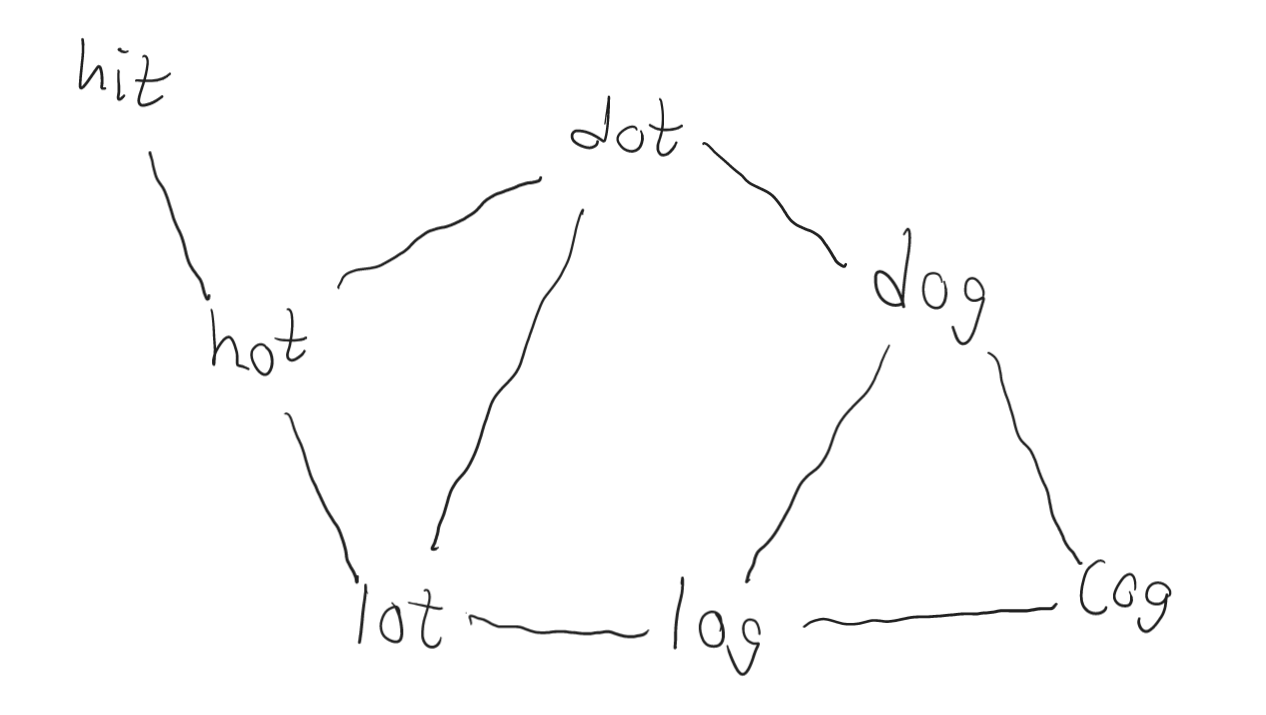 hit
dot
dog
hot
lot
log
cog